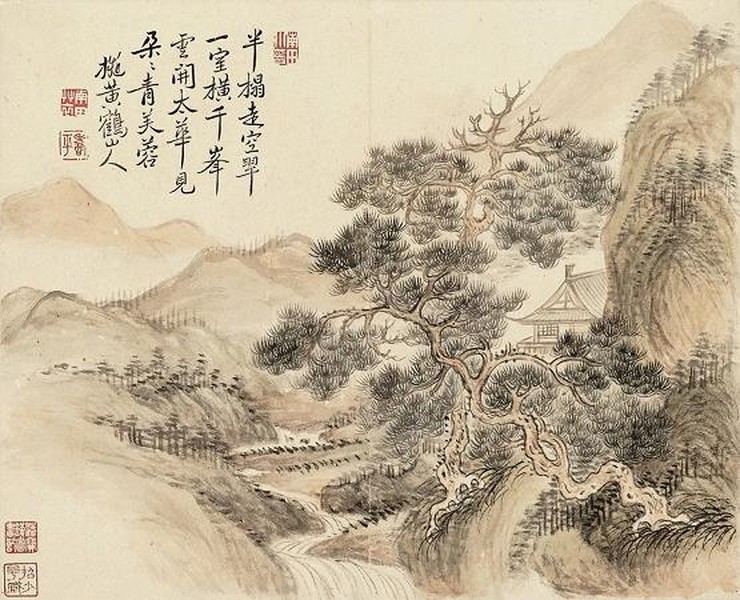 半榻走空翠
一室橫千峯
雲開太華見
朶〻青芙蓉
橅黃鶴山人